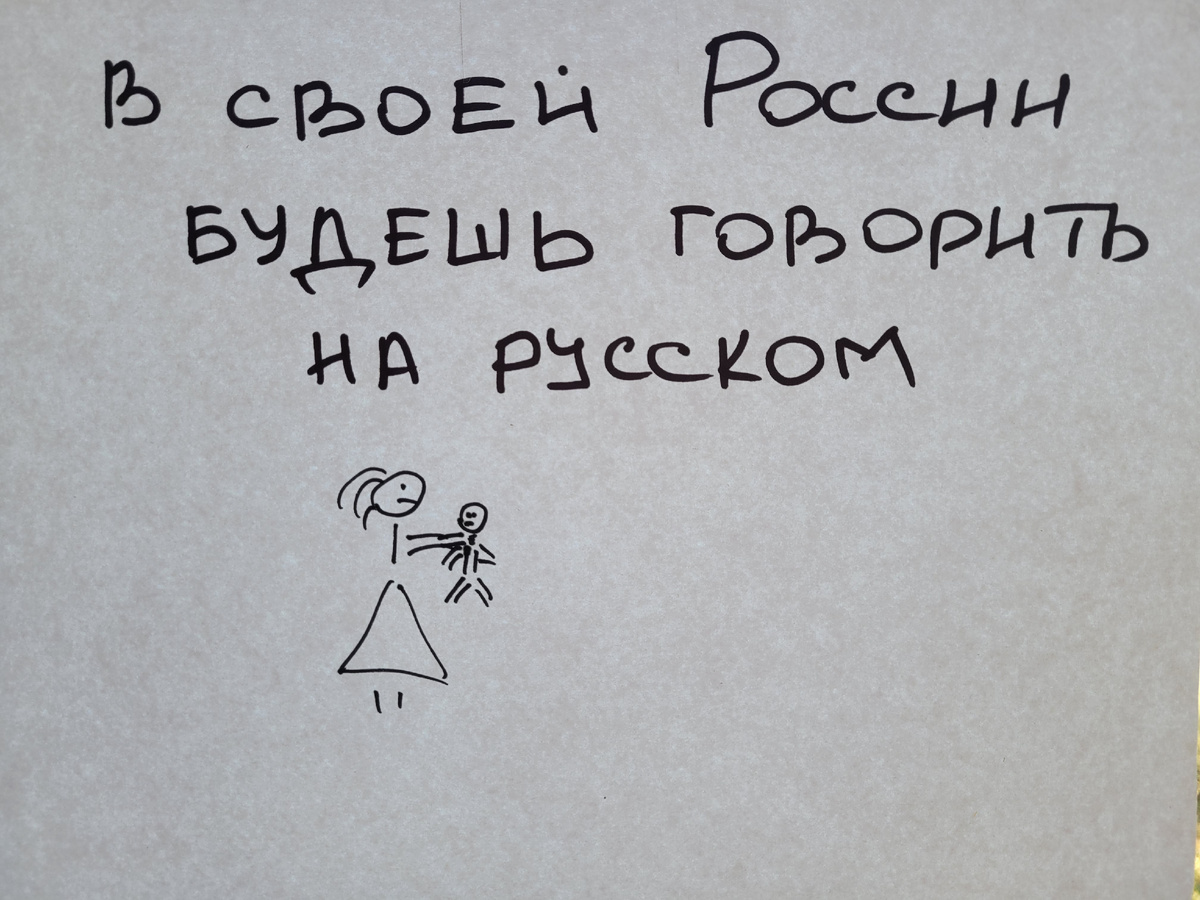 В СВОЕЙ РОССИИ
БУДЕШЬ ГОВОРИТЬ
НА РУССКОМ